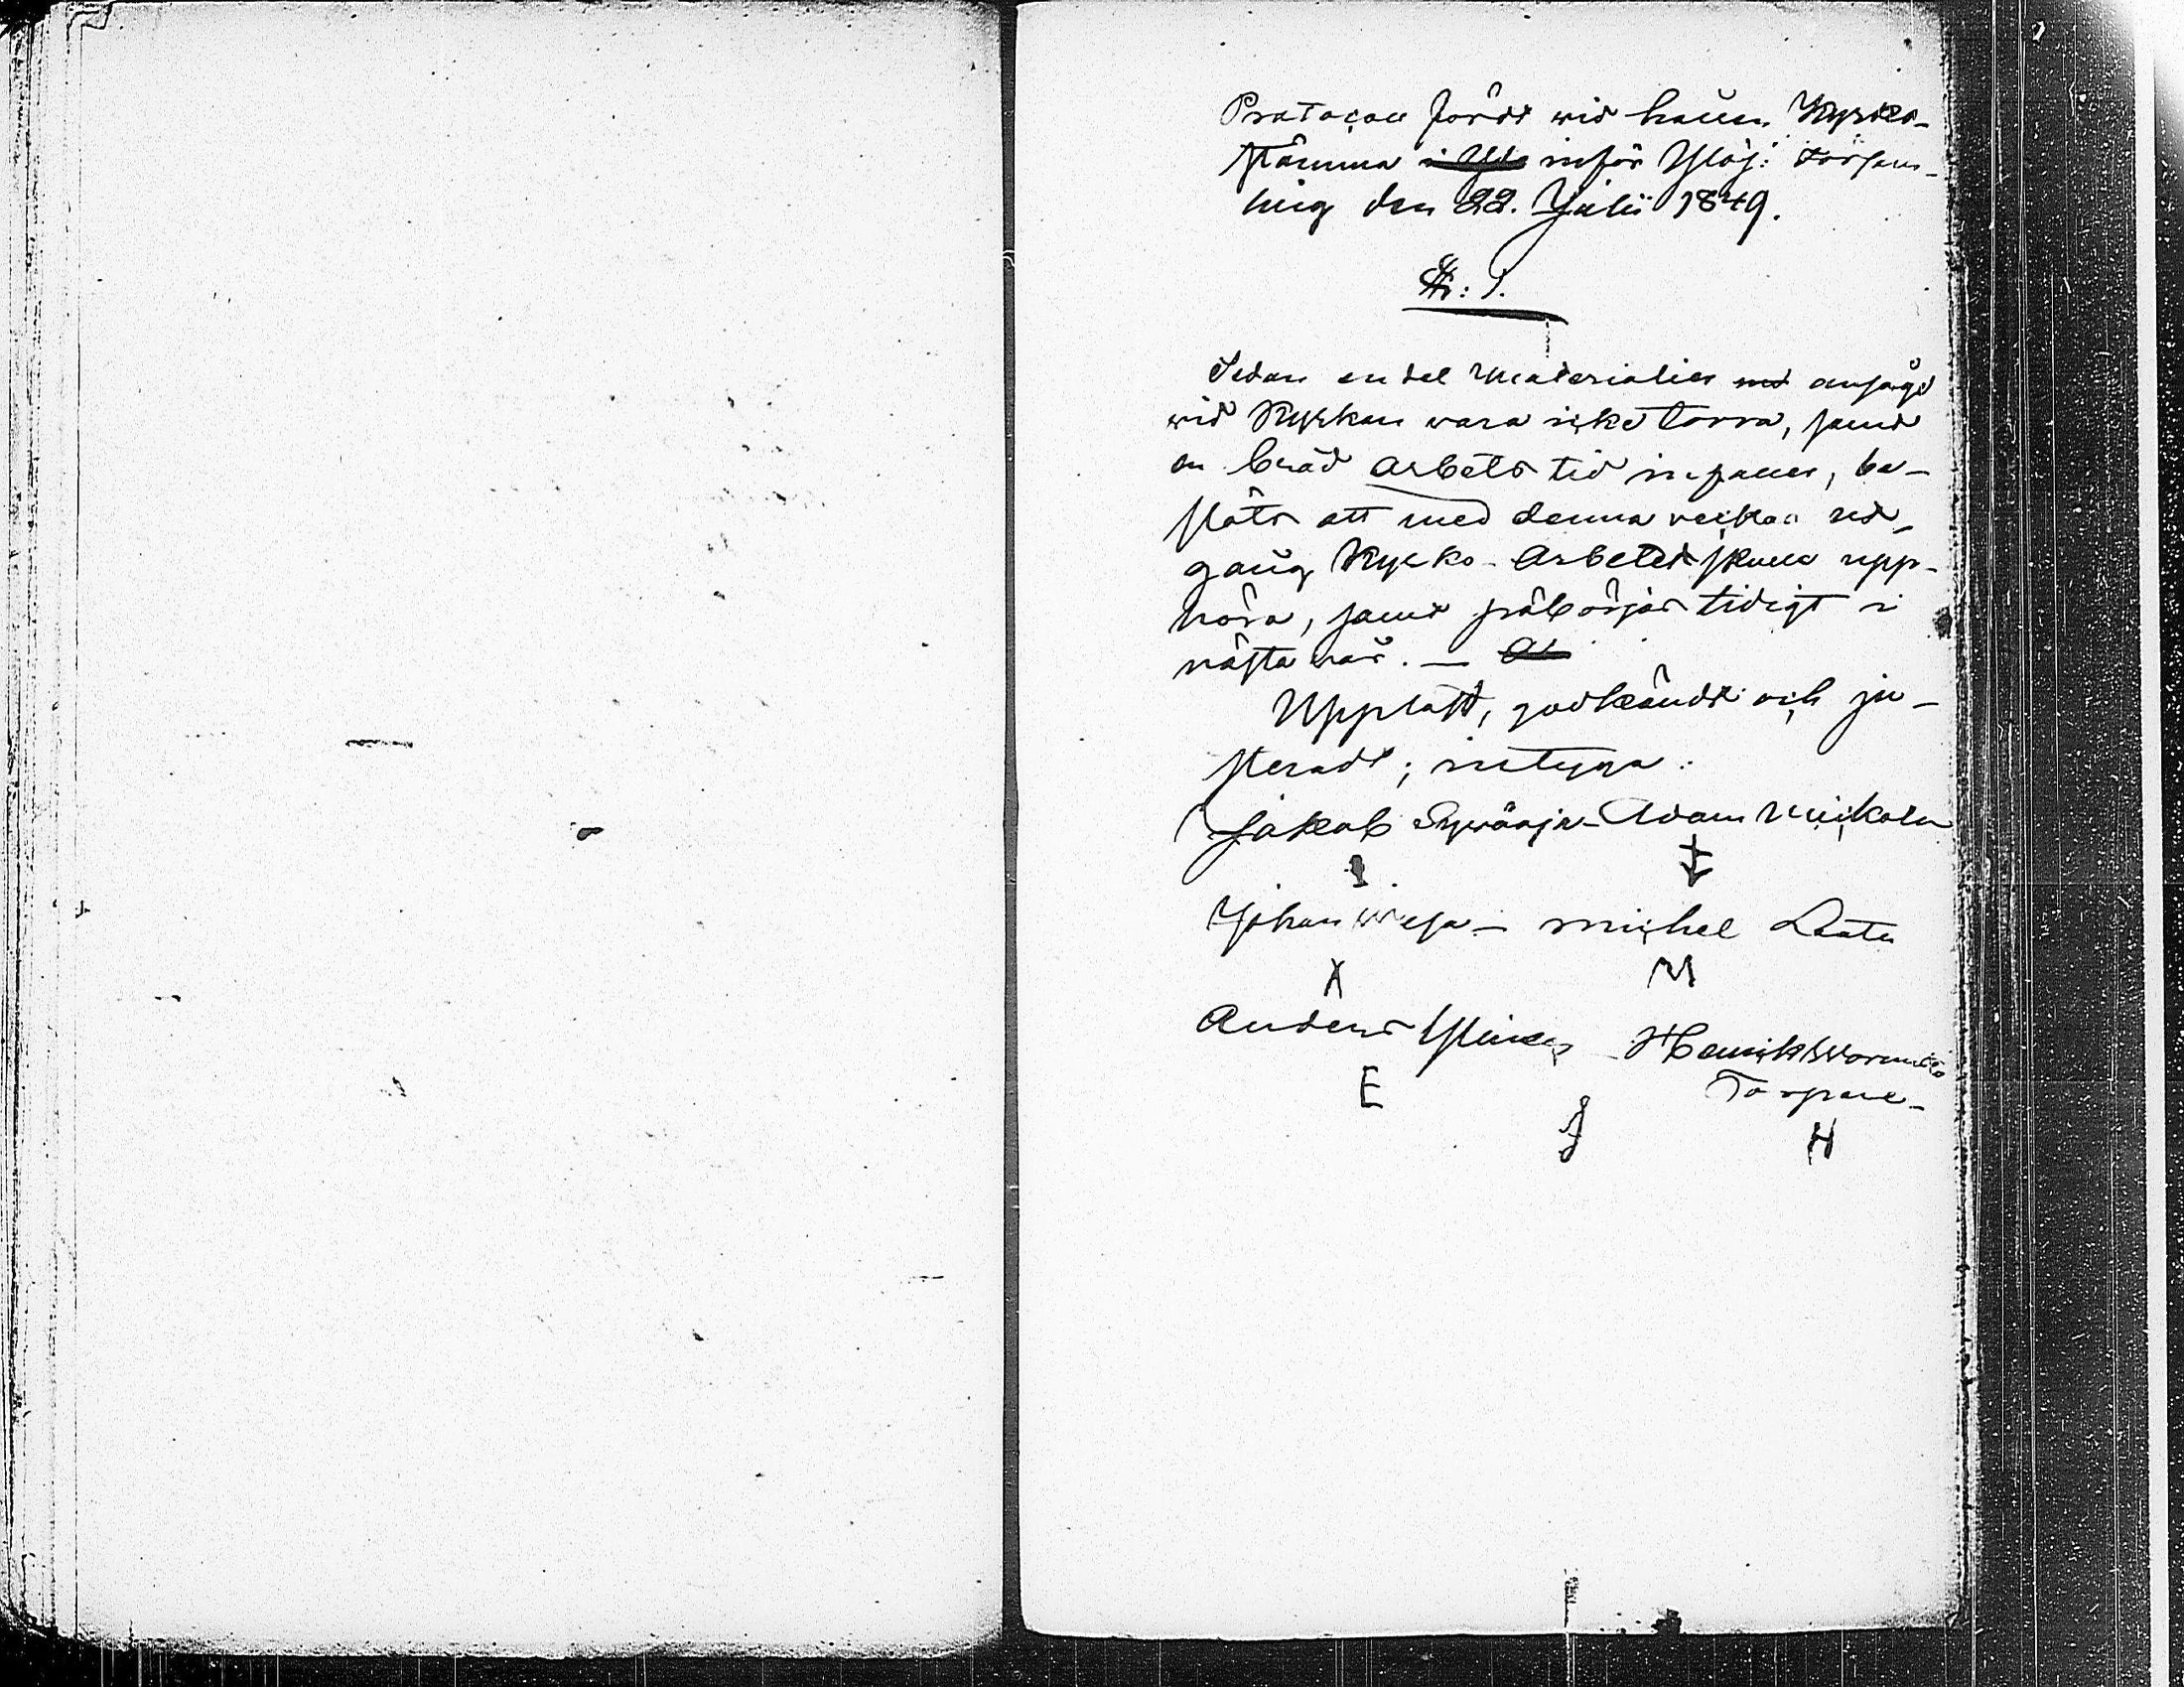 Protocoll fördt wid hållen Kyrko-
stämma i Ylö inför Ylöj: Försam-
ling den 22. Julii 1849.
§: 1.
Sedan en del materialier med ansågs
wid Kyrkan wara icke torra, samt
en bråd arbets tid infaller, be-
slöts att med denna veckas ut-
gång Kyrko-Arbetet skulle upp-
höra, samt påbörjas tidigt i
nästa vår. —
Uppläst, godkändt och ju-
steradt; intyga:
Jakob Sywäoja - Adam Mickola
Johan - Michel Laatu
X M
Anders Henrik
E Torpare -
J H